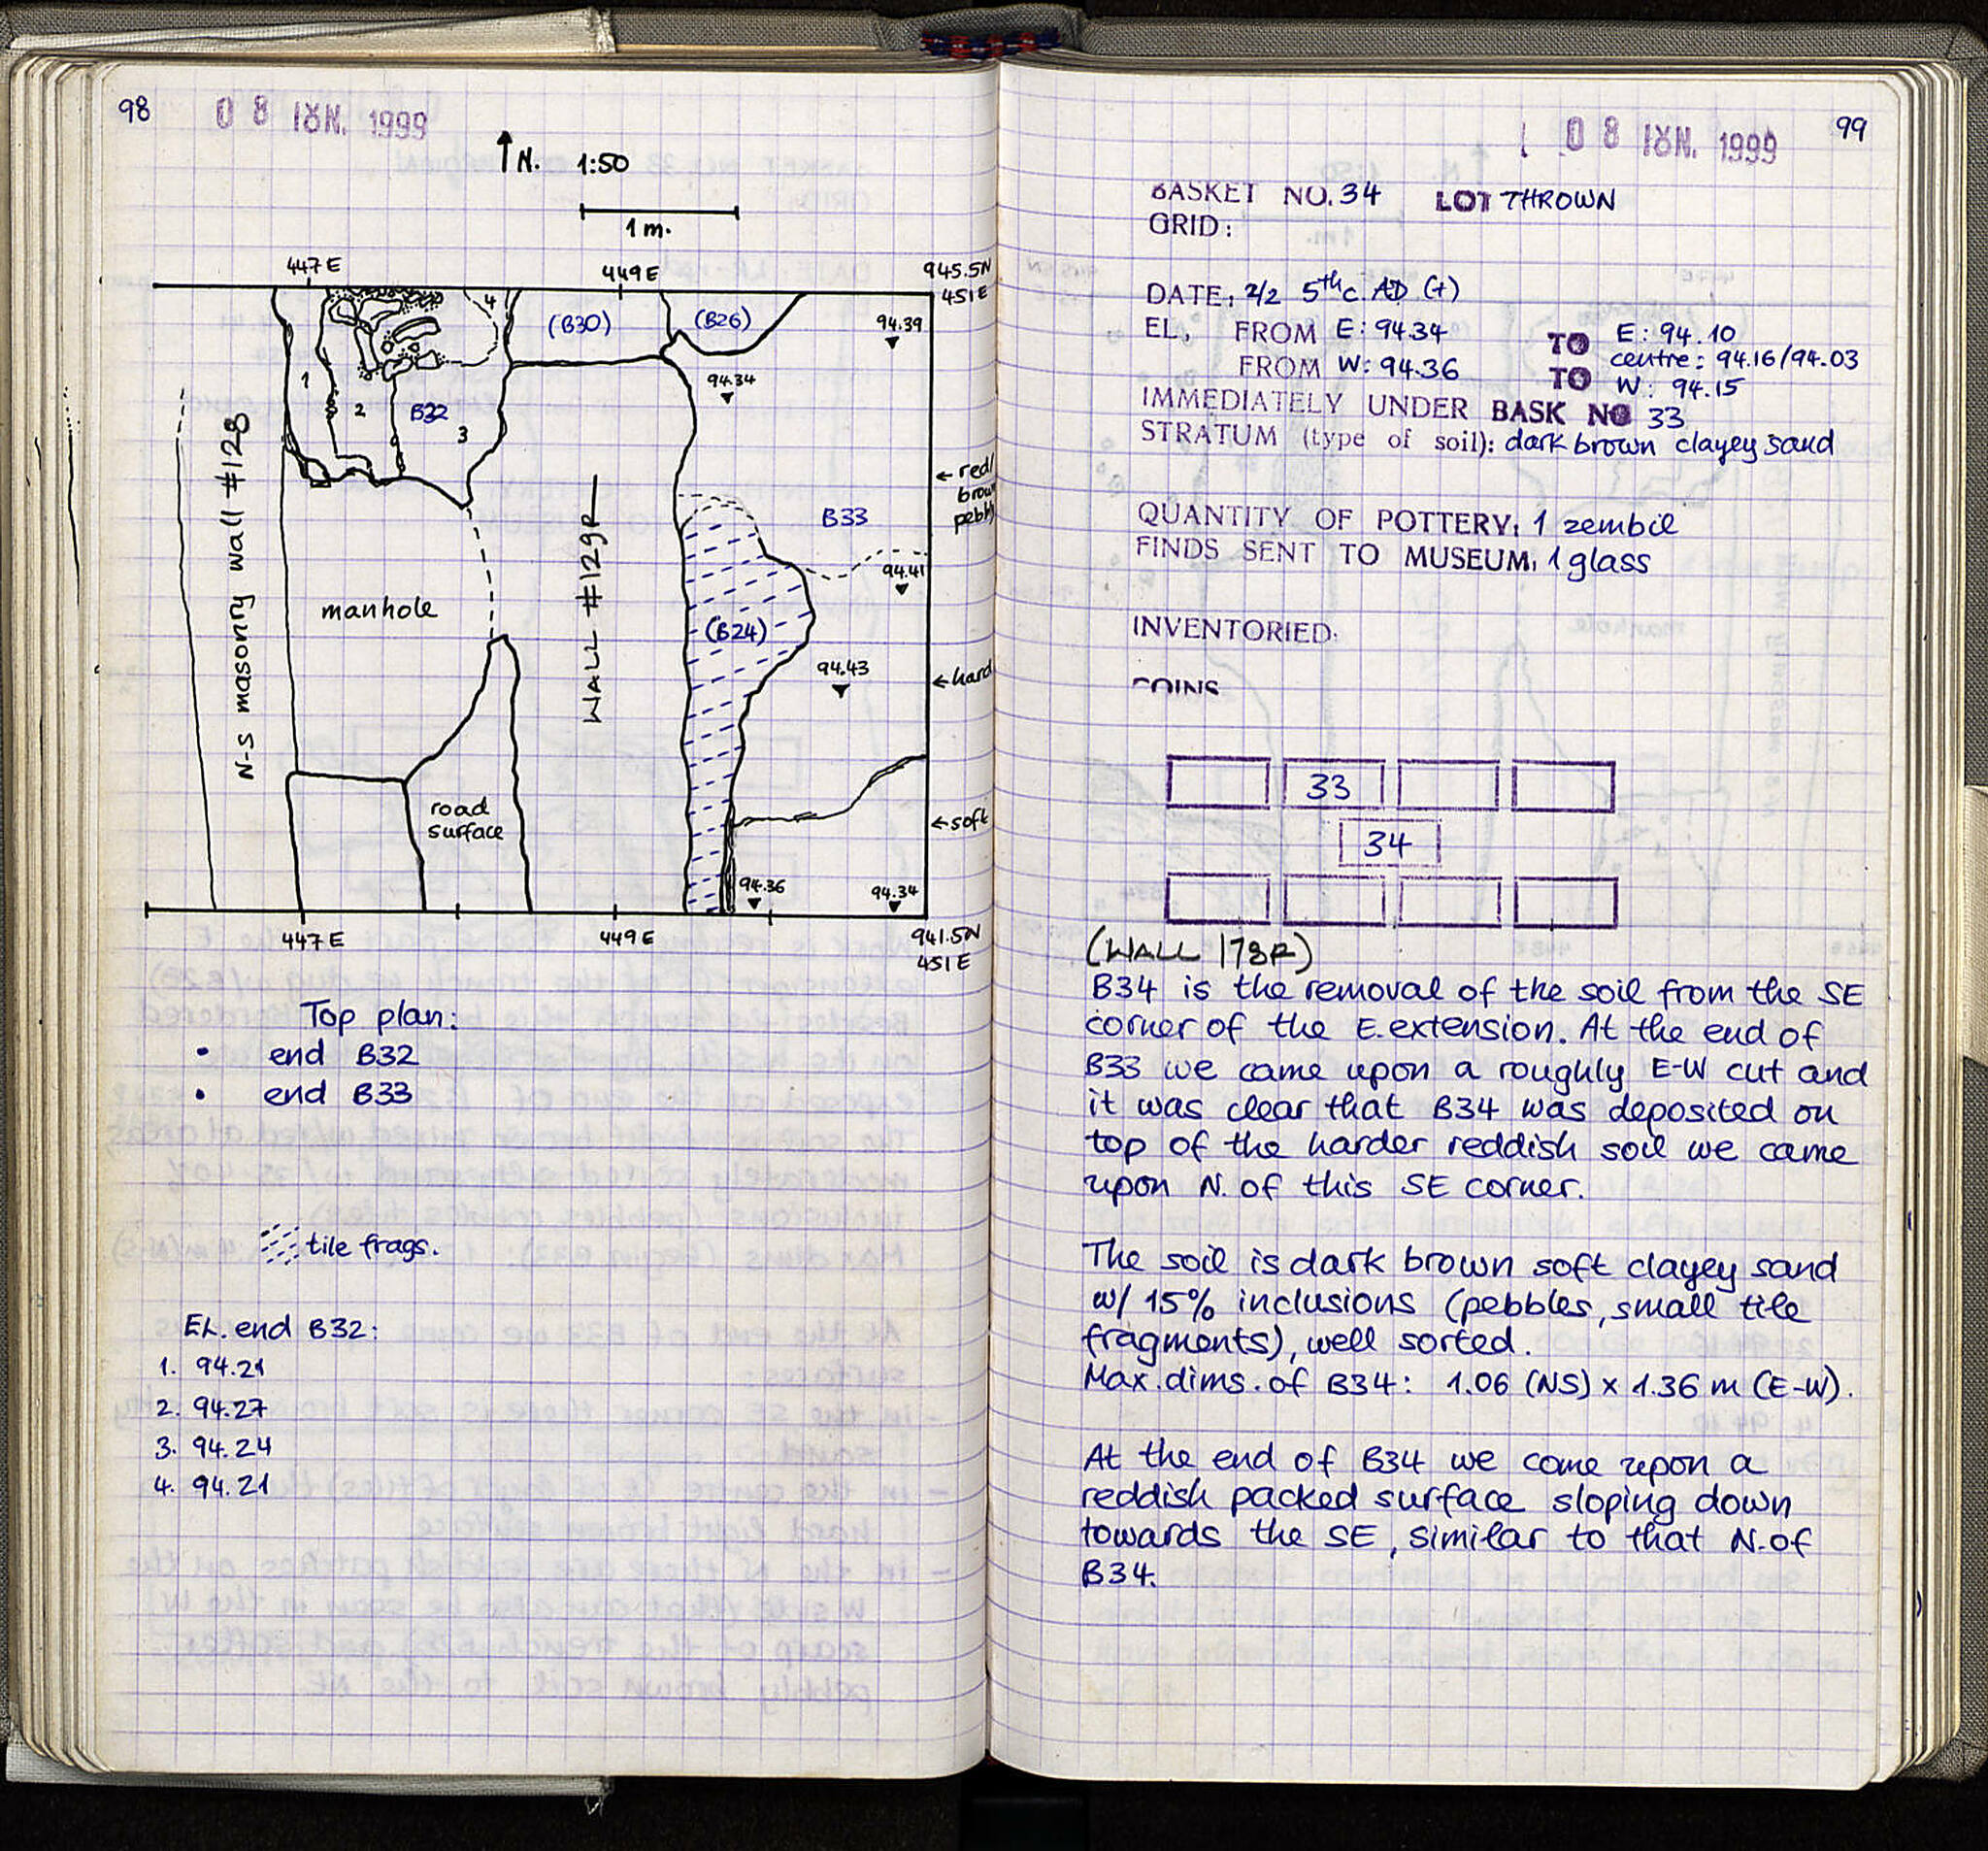 98
08 ΙΟΥΝ. 1999
N. 1:50
1 m.
447E
449E
945.5N
451E
4
(B30)
(B26)
94.39
94.34
1
2
B32
3
N-S masonry wall #128
WALL #129R
manhole
← red/
B33
94.41
(B24)
94.43
← hard
road
surface
← soft
94.36
94.34
447E
449E
941.5N
451E
Top plan:
• end B32
• end B33
tile frags.
EL. end B32:
1. 94.21
2. 94.27
3. 94.24
4. 94.21
99
08 ΙΟΥΝ. 1999
BASKET NO. 34 LOT THROWN
GRID:
DATE: 2/2 5th c. AD (+)
EL. FROM E: 94.34 TO E: 94.10
centre: 94.16/94.03
FROM W: 94.36 TO W: 94.15
IMMEDIATELY UNDER BASK NO 33
STRATUM (type of soil): dark brown clayey sand
QUANTITY OF POTTERY: 1 zembil
FINDS SENT TO MUSEUM: 1 glass
INVENTORIED:
COINS
33
34
(WALL 178R)
B34 is the removal of the soil from the SE
corner of the E. extension. At the end of
B33 we came upon a roughly E-W cut and
it was clear that B34 was deposited on
top of the harder reddish soil we came
upon N. of this SE corner.
The soil is dark brown soft clayey sand
w/ 15% inclusions (pebbles, small tile
fragments), well sorted.
Max. dims. of B34: 1.06 (NS) x 1.36 m (E-W).
At the end of B34 we come upon a
reddish packed surface sloping down
towards the SE, similar to that N. of
B34.